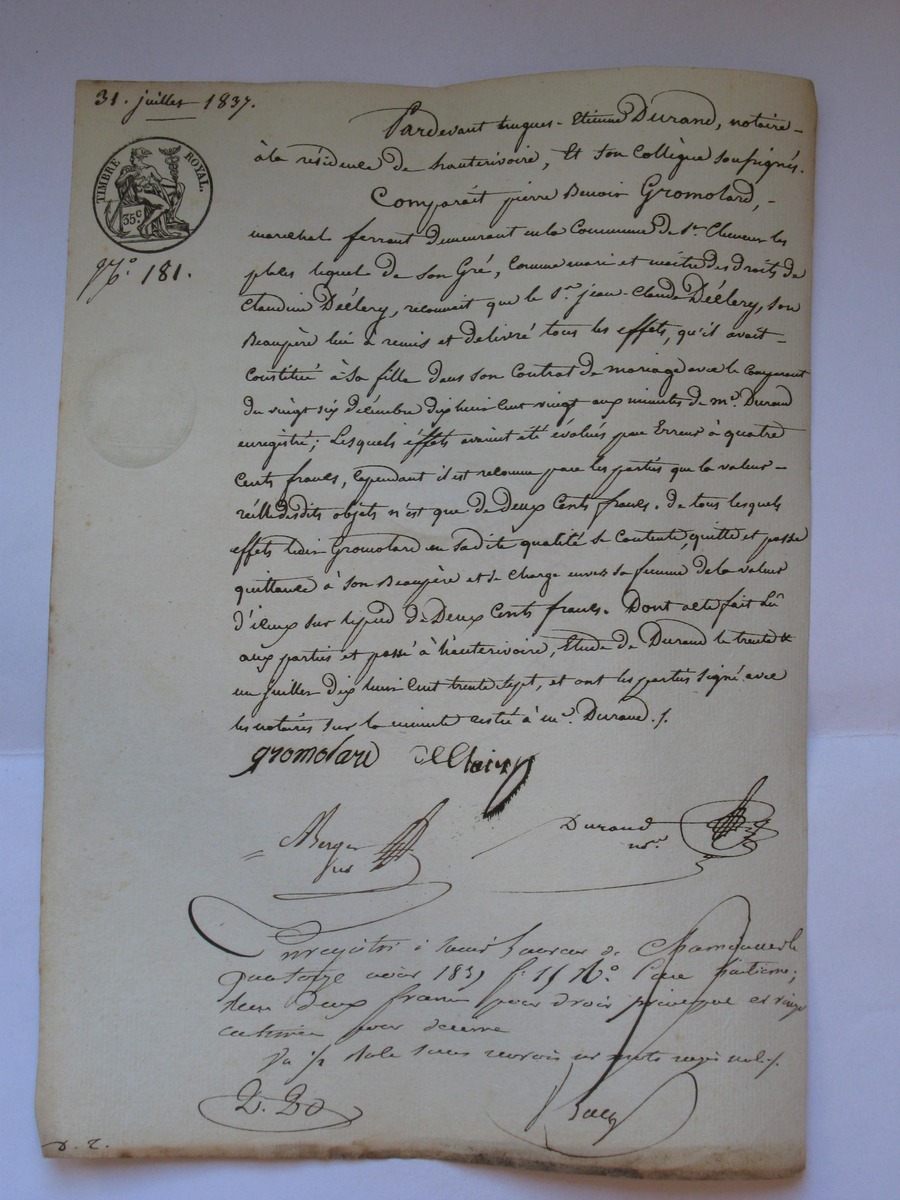 31. juillet 1837.
TIMBRE ROYAL.
35c
N.° 181.
Pardevant hugues-Etienne Durand, notaire
à la résidence de hauterivoire, Et Son Collègue Soussignés.
Comparait pierre Benoit Gromolard,
marechal ferrant demeurant en la Commune de St. Clement les
places lequel de Son Gré, Comme mari et maitre des droits de
Claudine Déclery, reconnait que le Sr. jean-Claude Déclery, son
Beaupère lui a remis et delivré tous les effets, qu'il avait
Constitué à Sa fille dans Son Contrat de mariage avec le Comparant
du vingt six décembre dix huit Cent vingt aux minutes de me. Durand
enregistré; Lesquels effets avaient été évalués par Erreur à quatre
Cents francs, Cependant il est reconnu par les parties que la valeur
réelle desdits objets n'est que de Deux Cents francs. de tous lesquels
effets ledit Gromolard en Sadite qualité Se Contente, quitte et passe
quittance à Son Beaupère et Se Charge envers Sa femme de la valeur
d'iceux sur le pied de Deux Cents francs. Dont acte fait Lû
aux parties et passé à hauterivoire, Etude de Durand le trente &
un juillet Dix huit Cent trente Sept, et ont les parties signé avec
les notaires sur la minute restée à me. Durand./.
gromolard
Berger
Durand
nre.
Enregistré à
quatorze 1837 N.°
deux francs pour droit principal et vingt
centimes pour decime
D. D.